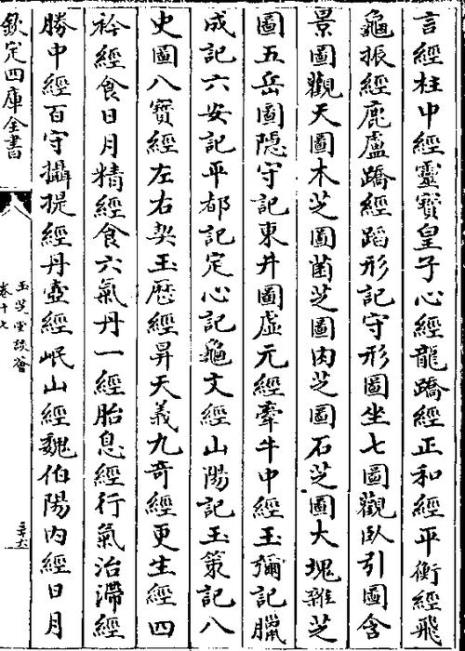 言經柱中經靈寶皇子心經龍蹻經正和經平衡經飛
龜振經鹿盧蹻經蹈形記守形圖坐七圖觀臥引圖含
景圖觀天圖木芝圖菌芝圖肉芝圖石芝圖大塊雜芝
圖五岳圖隠守記東井圖虛元經牽牛中經玉彌記臘
成記六安記平都記定心記龜文經山陽記玉策記八
史圖八寶經左右契玉歴經昇天義九奇經更生經四
衿經食日月精經食六氣丹一經胎息經行氣治滯經
勝中經百守攝提經丹壺經岷山經魏伯陽内經日月
欽定四庫全書
玉芝堂談薈
卷十七